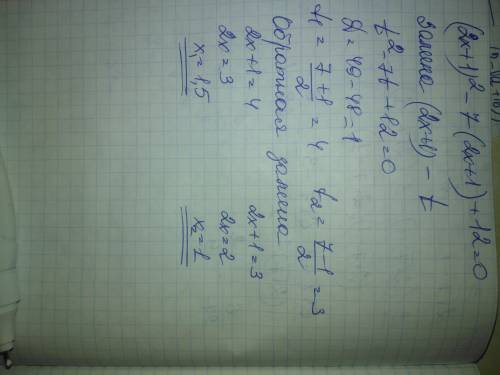 (2x+1)² - 7(2x+1) + 12 = 0
Замена (2x+1) - t
t² - 7t + 12 = 0
D = 49 - 48 = 1
t₁ = 7+1/2 = 4 t₂ = 7-1/2 = 3
Обратная замена
2x+1 = 4 2x+1 = 3
2x = 3 2x = 2
x₁ = 1,5 x₂ = 1